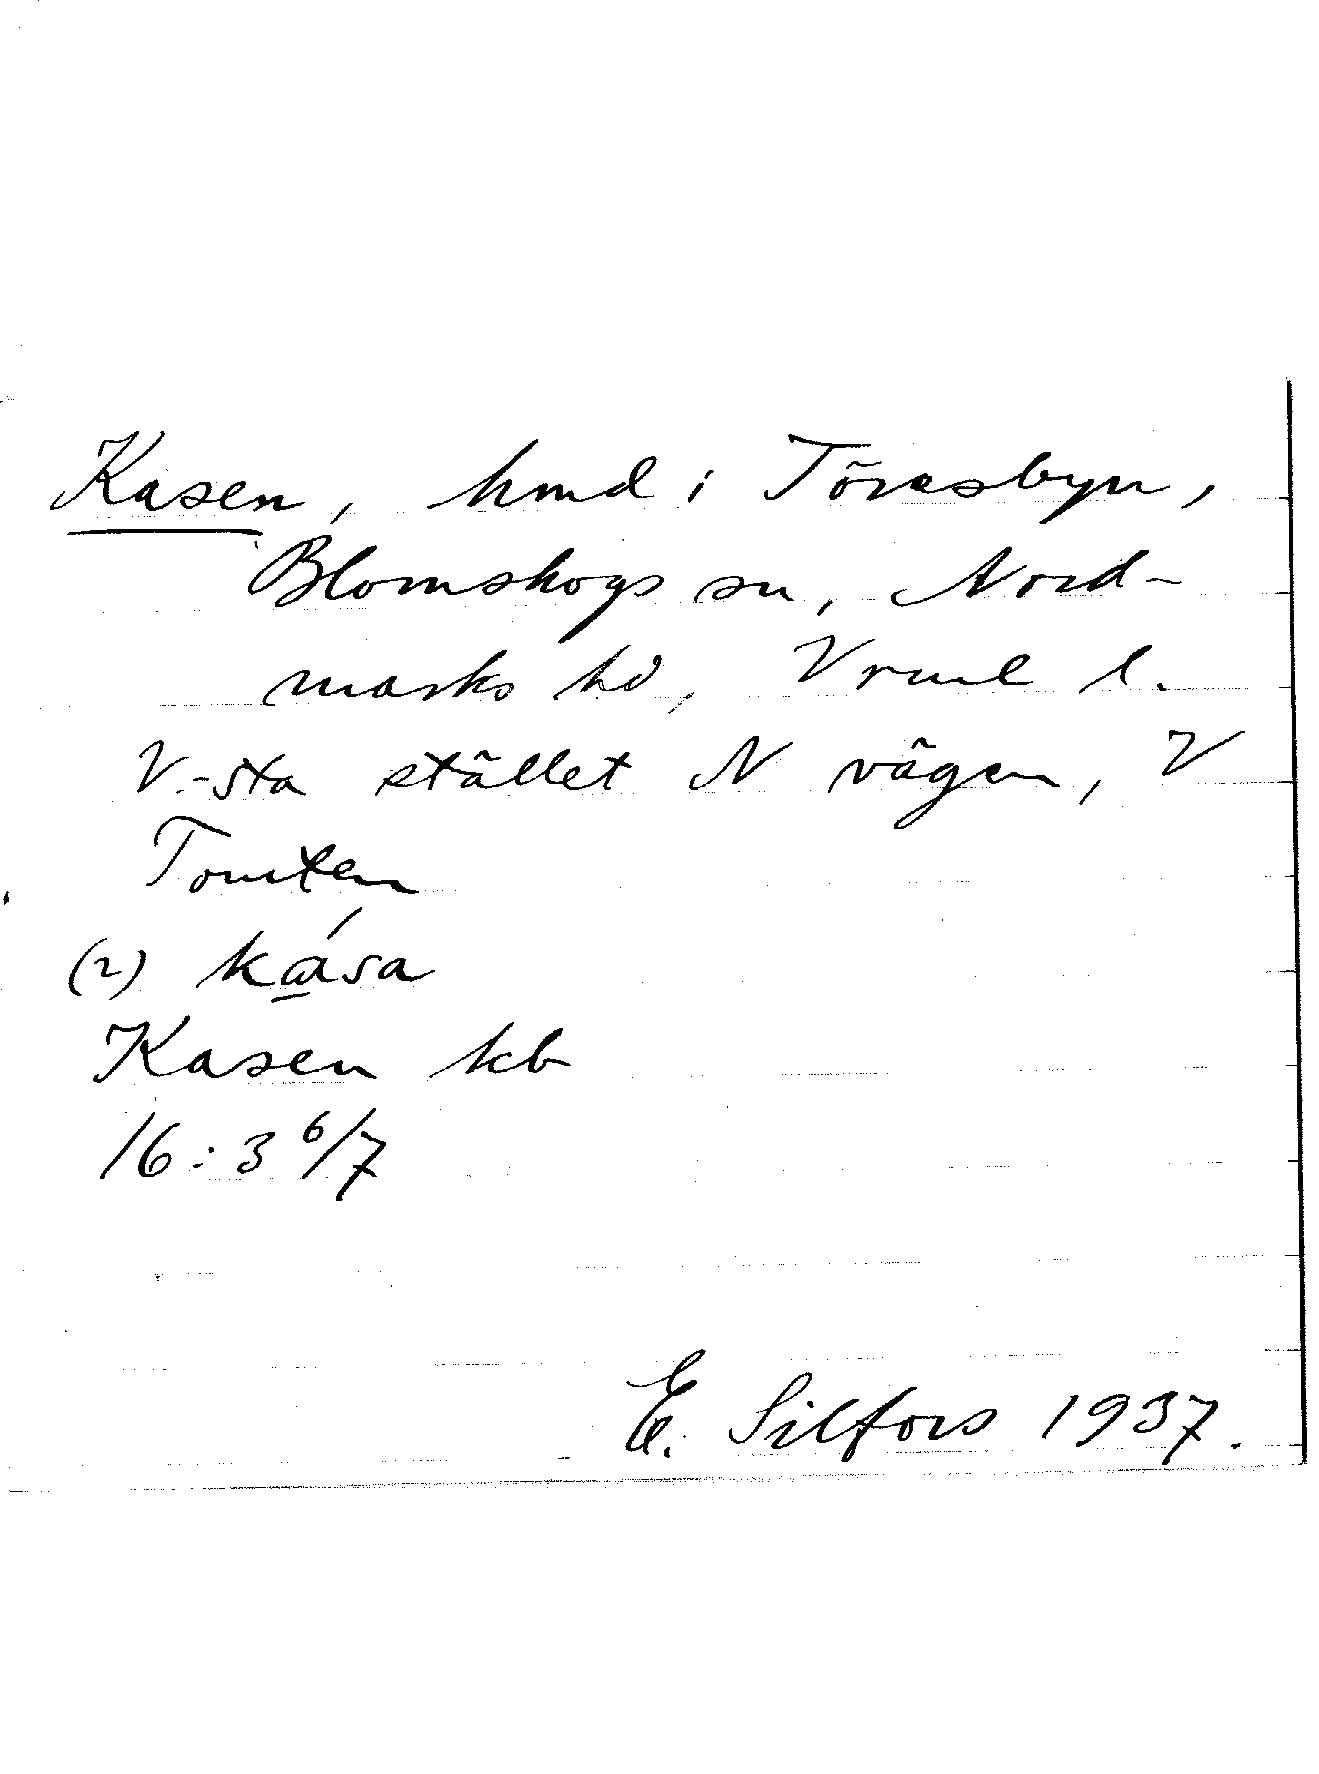 Kasen, hmd i Töresbyn,
Blomskogs sn, Nord-
marks hd, Vrml l.
V.-sta stället N vägen, V
Tomten
(2) ká̲sa
Kasen kb
16:3 6/7
E. Silfors 1937.